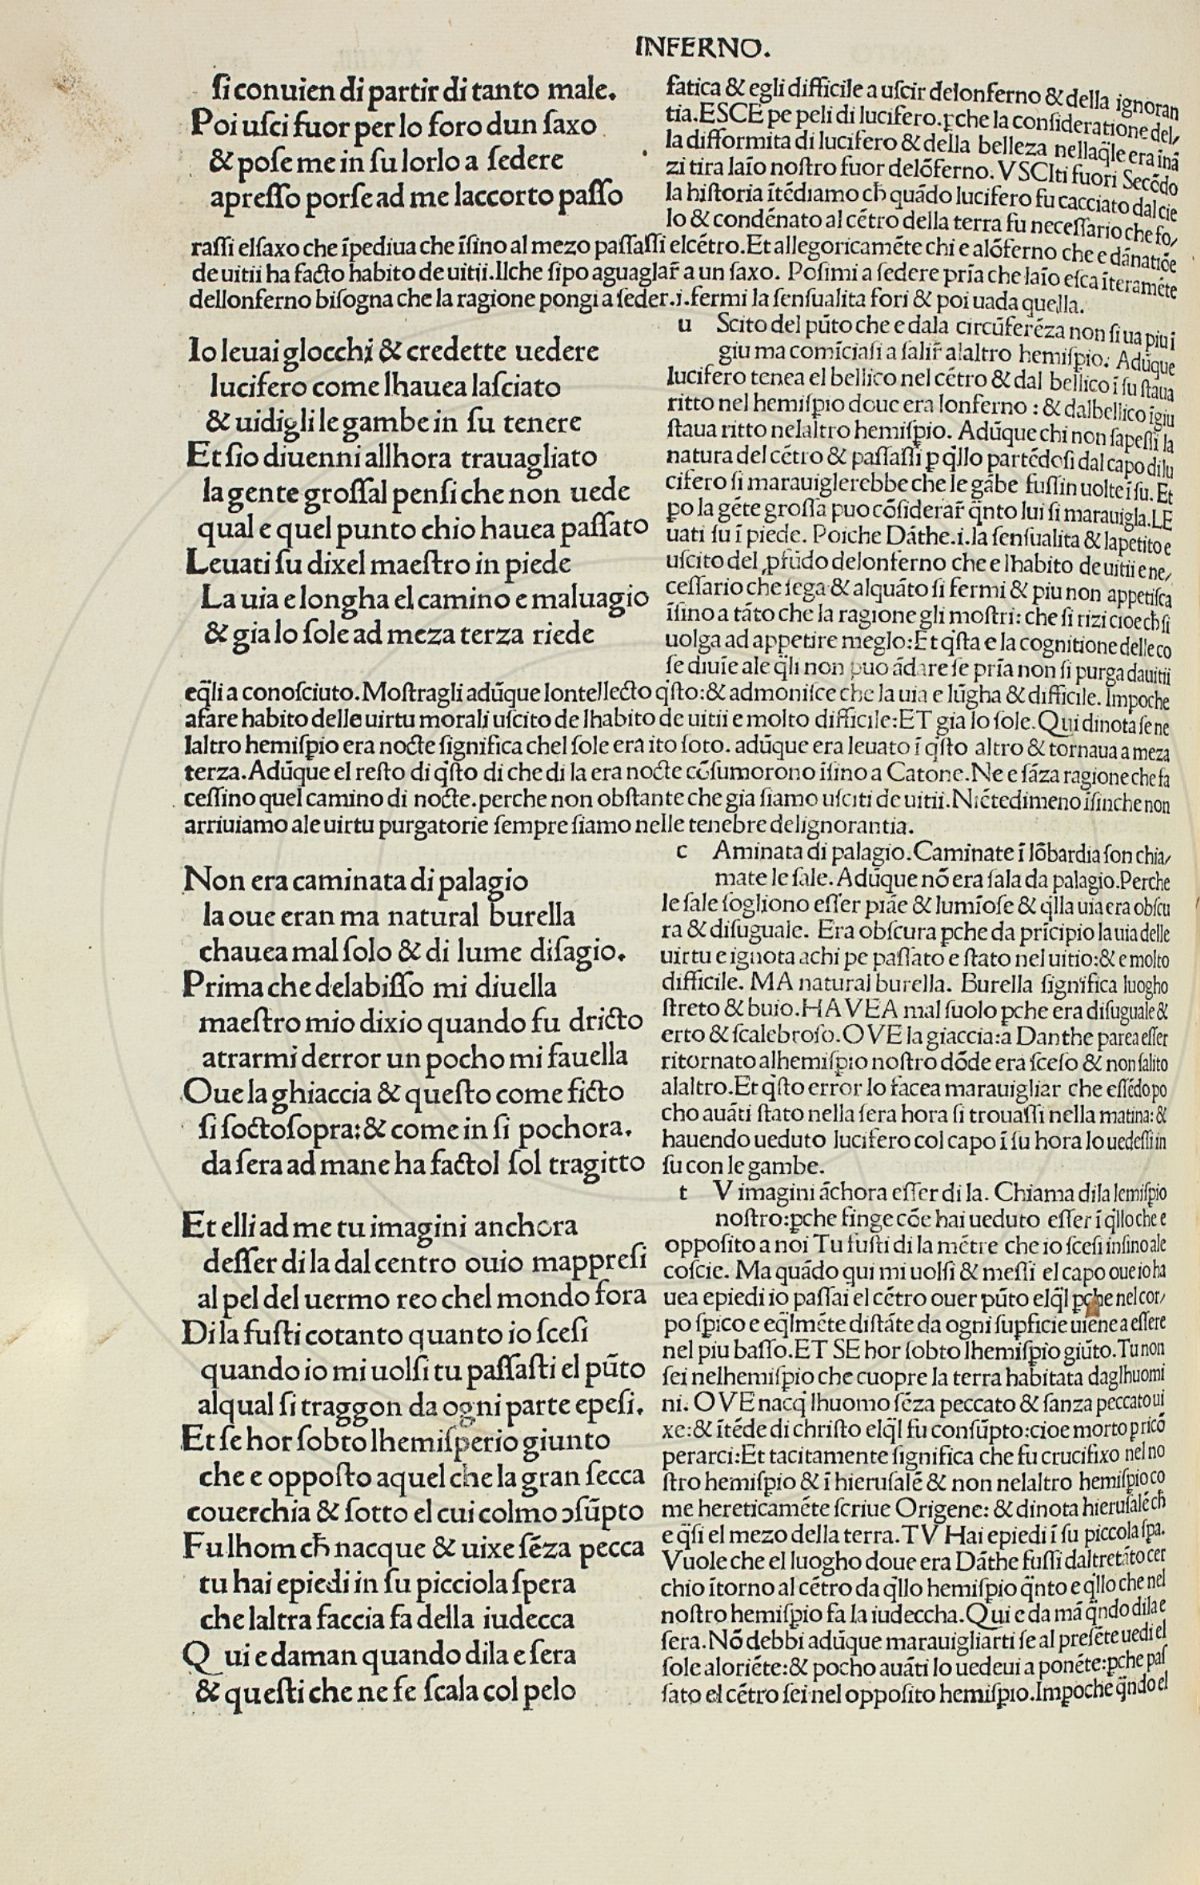 INFERNO.
ſi conuien di partir di tanto male.
Poi uſci fuor per lo foro dun ſaxo
& poſe me in ſu lorlo a ſedere
apreſſo porſe ad me laccorto paſſo
fatica & egli difficile a uſcir delonferno & della ignoran
tia. ESCE pe peli di lucifero. ꝑche la conſideratione del/
la difformita di lucifero & della belleza nellaq̃le era inã
zi tira laĩo noſtro fuor delõferno. VSCIti fuori Secẽdo
la hiſtoria ĩtẽdiamo ch̃ quãdo lucifero fu cacciato dal cie
lo & condẽnato al cẽtro della terra fu neceſſario che fo/
raſſi elſaxo che ĩpediua che ĩſino al mezo paſſaſſi elcẽtro. Et allegoricamẽte chi e alõferno che e dãnatiõe
de uitii ha facto habito de uitii. Ilche ſipo aguaglar̃ a un ſaxo. Poſimi a ſedere prĩa che laĩo eſca ĩteramẽte
dellonferno biſogna che la ragione pongi a ſeder .i. fermi la ſenſualita fori & poi uada quella.
Io leuai glocchi & credette uedere
lucifero come lhauea laſciato
& uidigli le gambe in ſu tenere
Et ſio diuenni allhora trauagliato
la gente groſſal penſi che non uede
qual e quel punto chio hauea paſſato
Leuati ſu dixel maeſtro in piede
La uia e longha el camino e maluagio
& gia lo ſole ad meza terza riede
u Scito del pũto che e dala circũferẽza non ſi ua piu i
giu ma comĩciaſi a ſalir̃ alaltro hemiſpio. Adũque
lucifero tenea el bellico nel cẽtro & dal bellico ĩ ſu ſtaua
ritto nel hemiſpio doue era lonferno : & dalbellico ĩgiu
ſtaua ritto nelaltro hemiſpio. Adũque chi non ſapeſſi la
natura del cẽtro & paſſaſſi ꝑ q̃llo partẽdoſi dal capo di lu
cifero ſi marauiglerebbe che le gãbe fuſſin uolte ĩ ſu. Et
po la gẽte groſſa puo cõſiderar̃ q̃nto lui ſi marauigla. LE
uati ſu ĩ piede. Poiche Dãthe .i. la ſenſualita & lapetito e
uſcito del ꝓfũdo delonferno che e lhabito de uitii e ne/
ceſſario che ſega & alquãto ſi fermi & piu non appetiſca
ĩſino a tãto che la ragione gli moſtri: che ſi rizi cioe ch̃ ſi
uolga ad appetire meglo: Et q̃ſta e la cognitione delle co
ſe diuĩe ale q̃li non puo ãdare ſe prĩa non ſi purga dauitii
eq̃li a conoſciuto. Moſtragli adũque lontellecto q̃ſto: & admoniſce che la uia e lũgha & difficile. Impoche
afare habito delle uirtu morali uſcito de lhabito de uitii e molto difficile: ET gia lo ſole. Qui dinota ſe ne
laltro hemiſpio era nocte ſignifica chel ſole era ito ſoto. adũque era leuato ĩ q̃ſto altro & tornaua a meza
terza. Adũque el reſto di q̃ſto di che di la era nocte cõſumorono ĩſino a Catone. Ne e ſãza ragione che fa
ceſſino quel camino di nocte. perche non obſtante che gia ſiamo uſciti de uitii. Niẽtedimeno ĩſinche non
arriuiamo ale uirtu purgatorie ſempre ſiamo nelle tenebre delignorantia.
Non era caminata di palagio
la oue eran ma natural burella
chauea mal ſolo & di lume diſagio.
Prima che delabiſſo mi diuella
maeſtro mio dixio quando fu dricto
atrarmi derror un pocho mi fauella
Oue la ghiaccia & queſto come ficto
ſi ſoctoſopra: & come in ſi pochora.
da ſera ad mane ha factol ſol tragitto
c Aminata di palagio. Caminate ĩ lõbardia ſon chia/
mate le ſale. Adũque nõ era ſala da palagio. Perche
le ſale ſogliono eſſer piãe & lumĩoſe & q̃lla uia era obſcu
ra & diſuguale. Era obſcura ꝑche da prĩcipio la uia delle
uirtu e ignota a chi pe paſſato e ſtato nel uitio: & e molto
difficile. MA natural burella. Burella ſignifica luogho
ſtreto & buio. HAVEA mal ſuolo ꝑche era diſuguale &
erto & ſcalebroſo. OVE la giaccia: a Danthe parea eſſer
ritornato alhemiſpio noſtro dõde era ſceſo & non ſalito
alaltro. Et q̃ſto error lo facea marauigliar che eſſẽdo po
cho auãti ſtato nella ſera hora ſi trouaſſi nella matina: &
hauendo ueduto lucifero col capo ĩ ſu hora lo uedeſſi in
ſu con le gambe.
Et elli ad me tu imagini anchora
deſſer di la dal centro ouio mappreſi
al pel del uermo reo chel mondo fora
Di la fuſti cotanto quanto io ſceſi
quando io mi uolſi tu paſſaſti el pũto
alqual ſi traggon da ogni parte epeſi.
Et ſe hor ſobto lhemiſperio giunto
che e oppoſto aquel che la gran ſecca
couerchia & ſotto el cui colmo ↄſũpto
Fu lhom ch̃ nacque & uixe ſẽza pecca
tu hai epiedi in ſu picciola ſpera
che laltra faccia fa della iudecca
Qui e da man quando di la e ſera
& queſti che ne fe ſcala col pelo
t V imagini ãchora eſſer di la. Chiama di la lemiſpio
noſtro: ꝑche finge cõe hai ueduto eſſer ĩ q̃llo che e
oppoſito a noi Tu fuſti di la mẽtre che io ſceſi inſino ale
coſcie. Ma quãdo qui mi uolſi & meſſi el capo oue io ha
uea epiedi io paſſai el cẽtro ouer pũto elq̃l ꝑche nel cor/
po ſpico e eq̃lmẽte diſtãte da ogni ſupficie uiene a eſſere
nel piu baſſo. ET SE hor ſobto lhemiſpio giũto. Tu non
ſei nelhemiſpio che cuopre la terra habitata daglhuomi
ni. OVE nacq̃ lhuomo ſẽza peccato & ſanza peccato ui
xe: & ĩtẽde di chriſto elq̃l fu conſũpto: cioe morto ꝑ ricõ
perarci: Et tacitamente ſignifica che fu crucifixo nel no
ſtro hemiſpio & ĩ hieruſalẽ & non nelaltro hemiſpio co
me hereticamẽte ſcriue Origene: & dinota hieruſalẽ ch̃
e q̃ſi el mezo della terra. TV Hai epiedi ĩ ſu piccola ſpa.
Vuole che el luogho doue era Dãthe fuſſi daltretãto cer
chio ĩtorno al cẽtro da q̃llo hemiſpio q̃nto e q̃llo che nel
noſtro hemiſpio fa la iudeccha. Qui e da mã q̃ndo di la e
ſera. Nõ debbi adũque marauigliarti ſe al preſẽte uedi el
ſole aloriẽte: & pocho auãti lo uedeui a ponẽte: ꝑche paſ
ſato el cẽtro ſei nel oppoſito hemiſpio. Impoche q̃ndo el